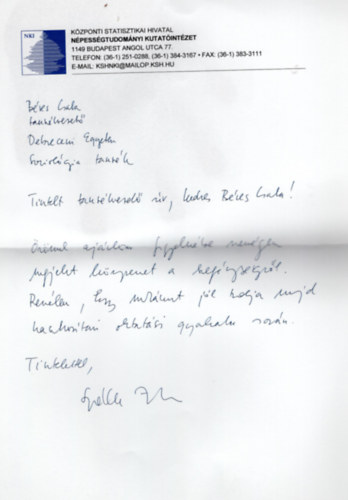 NKI
KÖZPONTI STATISZTIKAI HIVATAL
NÉPESSÉGTUDOMÁNYI KUTATÓINTÉZET
1149 BUDAPEST ANGOL UTCA 77.
TELEFON: (36-1) 251-0288, (36-1) 384-3167 • FAX: (36-1) 383-3111
E-MAIL: KSHNKI@MAILOP.KSH.HU
Béres Csaba
tanszékvezető
Debreceni Egyetem
Szociológia tanszék
Tisztelt tanszékvezető úr, kedves Béres Csaba!
Örömmel ajánlom figyelmébe nemrégen
megjelent könyvemet a szegénységről.
Remélem, hogy munkámat jól tudja majd
hasznosítani oktatási gyakorlata során.
Tisztelettel,